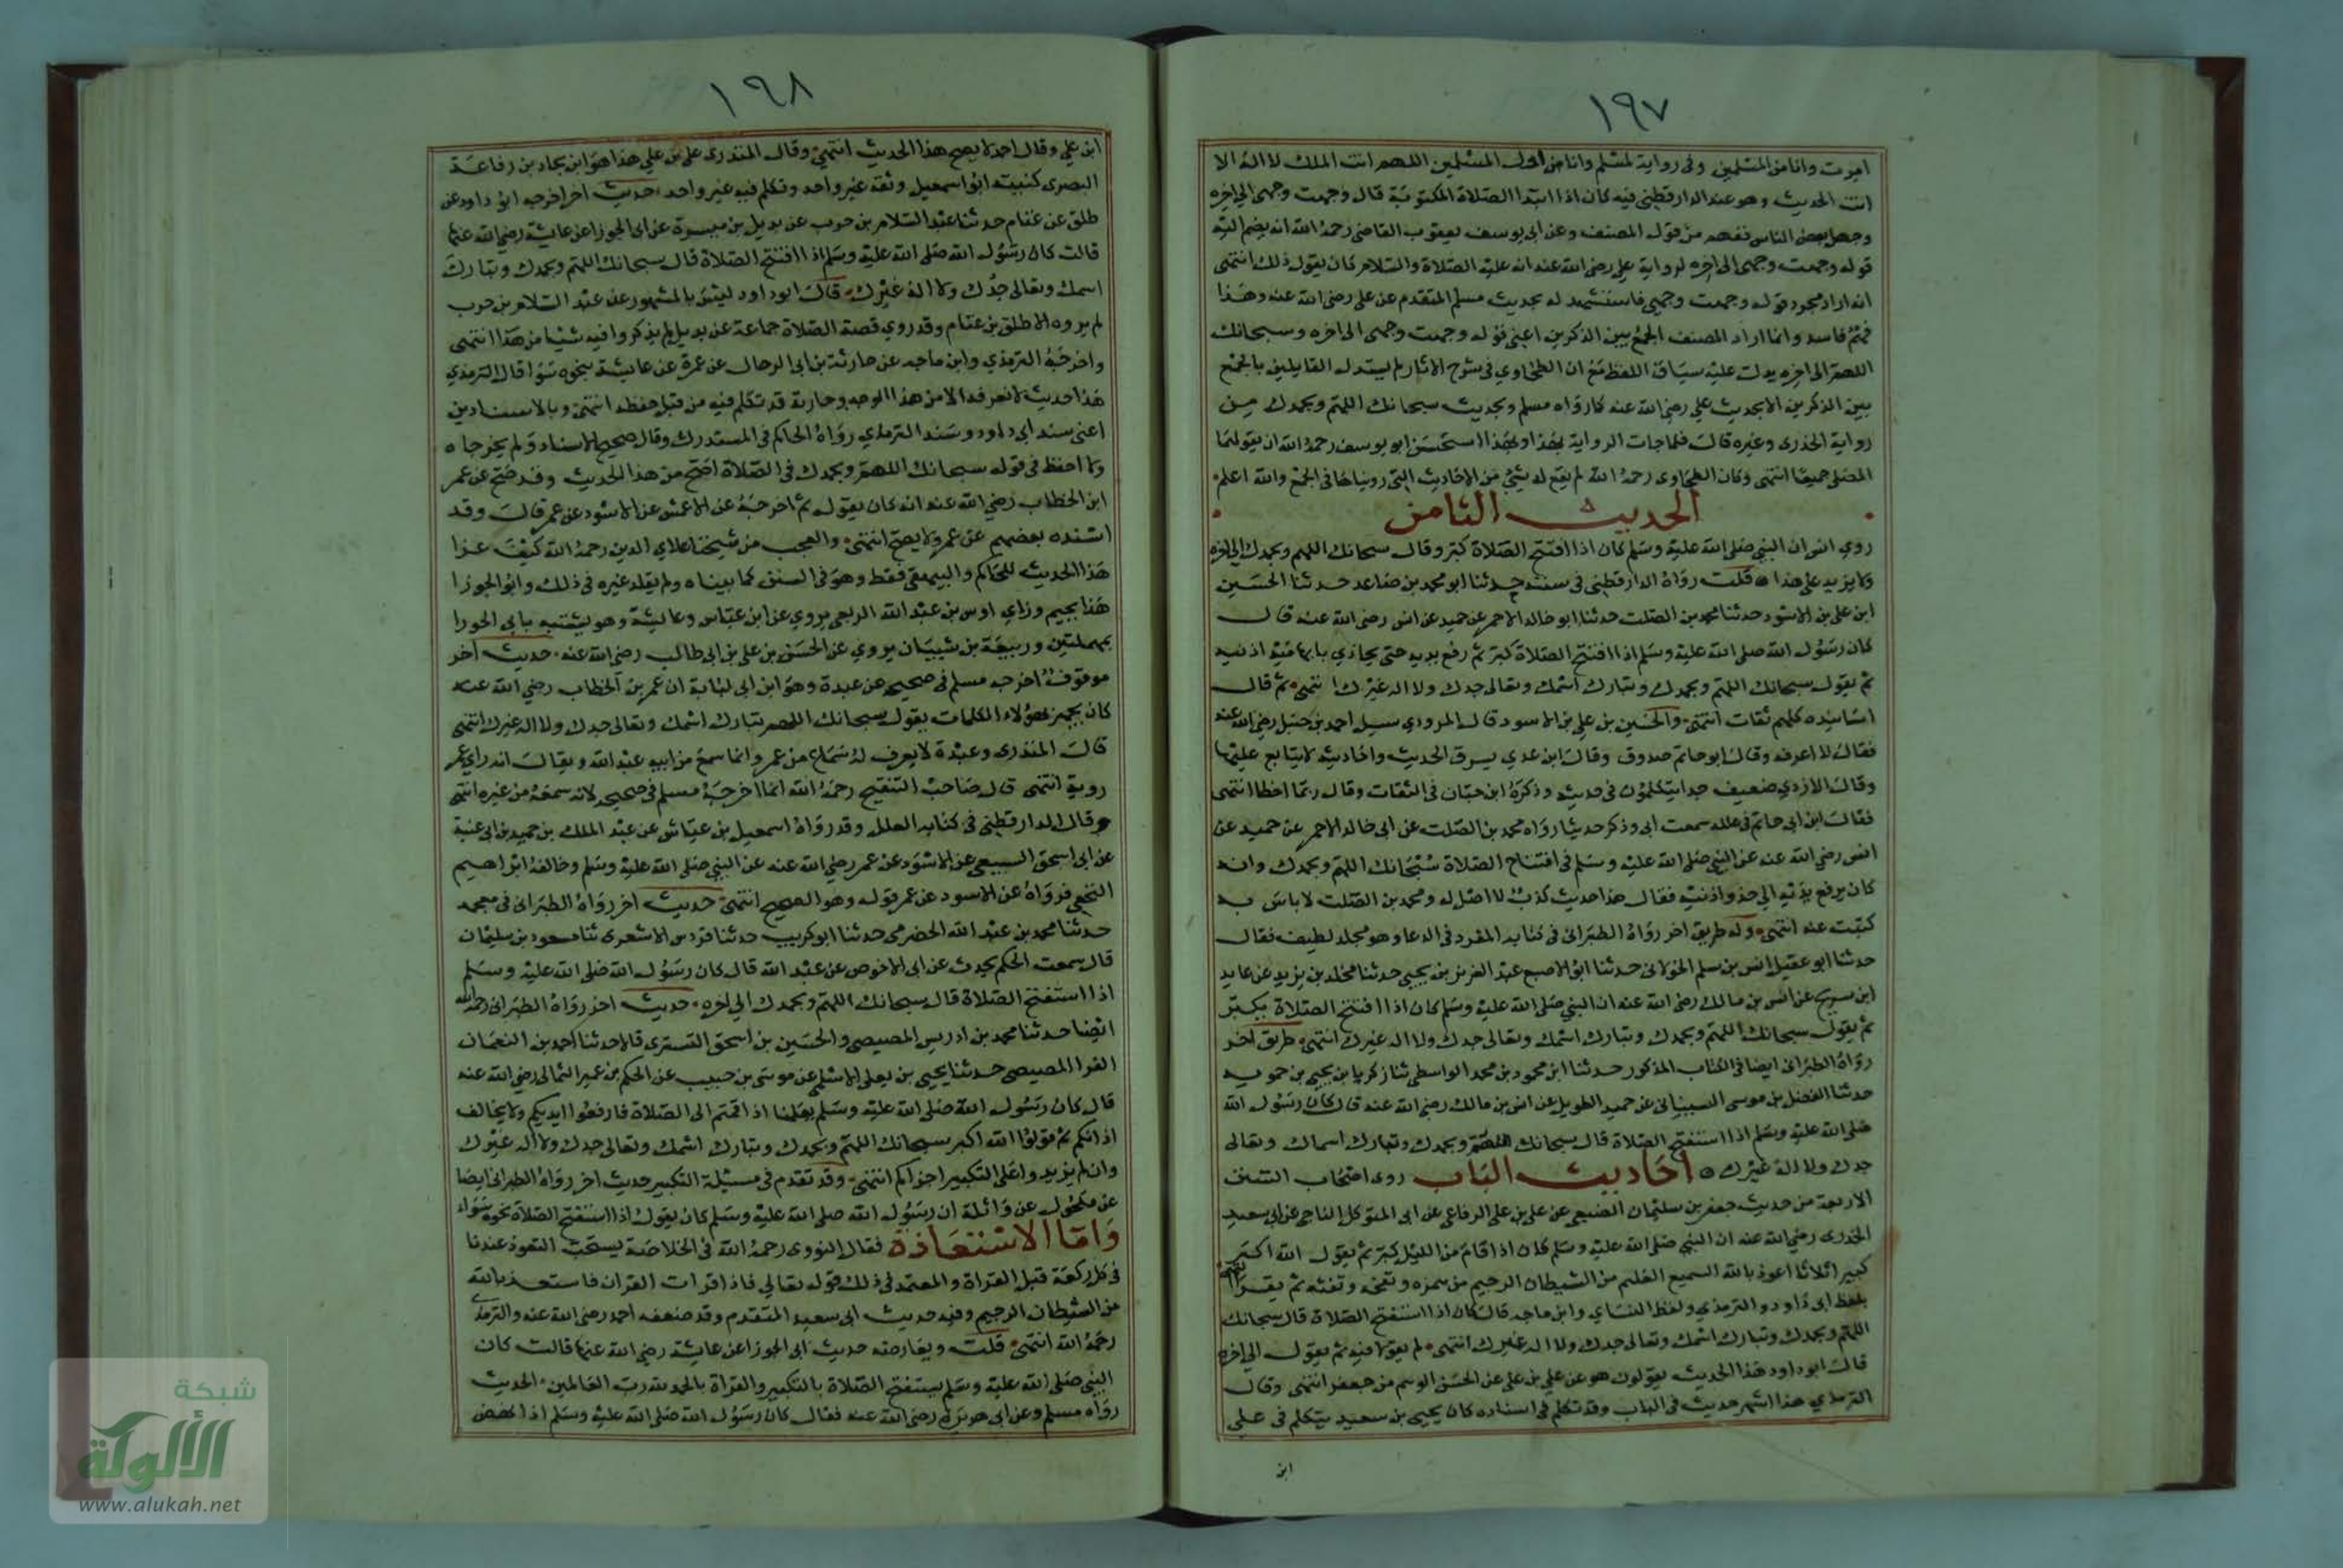 ١٩٧
امرت وانا من المسلمين وفى رواية لمسلم وانا من اول المسلمين اللهم انت الملك لا اله الا
انت الحديث وهو عند الدارقطني فيه كان اذا ابتدا الصلاة المكتوبة قال وجهت وجهى الى اخره
وجعل بعض الناس نفهم من قول المصنف وعن ابى يوسف يعقوب القاضى رحمه الله انه يضم اليه
قوله وجهت وجهى الى اخره لرواية على رضى الله عنه انه عليه الصلاة والسلام كان يقول ذلك انتهى
انه اراد مجرد قوله وجهت وجهى فاستشهد له بحديث مسلم المتقدم عن على رضى الله عنه وهذا
فهم فاسد وانما اراد المصنف الجمع بين الذكرين اعنى قوله وجهت وجهى الى اخره وسبحانك
اللهم الى اخره يدل عليه سياق اللفظ ثم ان الطحاوي في شرح الاثار لم يستدل القايلين بالجمع
بين الذكرين الا بحديث علي رضي الله عنه كما رواه مسلم وبحديث سبحانك اللهم وبحمدك من
رواية الخدرى وغيره قال فلما جات الرواية بهذا وبهذا استحسن ابو يوسف رحمه الله ان يقولهما
المصلى جميعا انتهى وكان الطحاوى رحمه الله لم يقع له شئ من الاحاديث التى رويناها فى الجمع والله اعلم
الحديث الثامن
روي انس ان النبي صلى الله عليه وسلم كان اذا افتتح الصلاة كبر وقال سبحانك اللهم وبحمدك الى اخره
ولا يزيد على هذا قلت رواه الدارقطنى فى سننه حدثنا ابو محمد بن صاعد حدثنا الحسين
ابن على بن الاسود حدثنا محمد بن الصلت حدثنا ابو خالد الاحمر عن حميد عن انس رضى الله عنه قال
كان رسول الله صلى الله عليه وسلم اذا افتتح الصلاة كبر ثم رفع يديه حتى يحاذي بابهاميه اذنيه
ثم يقول سبحانك اللهم وبحمدك وتبارك اسمك وتعالى جدك ولا اله غيرك انتهى ثم قال
اسانيده كلهم ثقات انتهى والحسين بن على بن الاسود قال المروذي سيل احمد بن حنبل رضى الله عنه
فقال لا اعرفه وقال ابو حاتم صدوق وقال ابن عدي يسرق الحديث واحاديثه لا يتابع عليها
وقال الازدي ضعيف جدا يتكلمون فى حديثه وذكره ابن حبان في الثقات وقال ربما اخطا انتهى
فقال ابن ابى حاتم فى علله سمعت ابى وذكر حديثا رواه محمد بن الصلت عن ابى خالد الاحمر عن حميد عن
انس رضي الله عنه عن النبي صلى الله عليه وسلم فى افتتاح الصلاة سبحانك اللهم وبحمدك وانه
كان يرفع يديه الى حذو اذنيه فقال هذا حديث كذب لا اصل له ومحمد بن الصلت لا باس به
كتبت عنه انتهى وله طريق اخر رواه الطبرانى فى كتابه المفرد فى الدعا وهو مجلد لطيف فقال
حدثنا ابو عقيل انس بن سلم الخولانى حدثنا ابو الاصبع عبد العزيز بن يحيى حدثنا مخلد بن يزيد عن عايد
ابن سريح عن انس بن مالك رضى الله عنه ان النبي صلى الله عليه وسلم كان اذا افتتح الصلاة يكبر
ثم يقول سبحانك اللهم وبحمدك وتبارك اسمك وتعالى جدك ولا اله غيرك انتهى طريق اخر
رواه الطبرانى ايضا فى الكتاب المذكور حدثنا ابن محمود بن محمد الواسطى ثنا زكريا بن يحيى بن حمويه
حدثنا الفضل بن موسى السينانى عن حميد الطويل عن انس بن مالك رضى الله عنه قال كان رسول الله
صلى الله عليه وسلم اذا استفتح الصلاة قال سبحانك اللهم وبحمدك وتبارك اسمك وتعالى
جدك ولا اله غيرك احاديث الباب روى اصحاب السنن
الاربعة من حديث جعفر بن سليمان الضبعى عن على بن على الرفاعى عن ابى المتوكل الناجى عن ابى سعيد
الخدرى رضى الله عنه ان النبي صلى الله عليه وسلم كان اذا قام من الليل كبر ثم يقول الله اكبر
كبيرا ثلاثا اعوذ بالله السميع العليم من الشيطان الرجيم من همزه ونفخه ونفثه ثم يقرا
بلفظ ابى داود والترمذي ولفظ النساي وابن ماجه قال كان اذا استفتح الصلاة قال سبحانك
اللهم وبحمدك وتبارك اسمك وتعالى جدك ولا اله غيرك انتهى لم يقولا فيه ثم يقول الى اخره
قال ابو داود هذا الحديث يقولون هو عن على بن على عن الحسن الوهم من جعفر انتهى وقال
الترمذي هذا اشهر حديث فى الباب وقد تكلم فى اسناده كان يحيى بن سعيد يتكلم فى على
ابن
١٩٨
ابن على وقال احمد لا يصح هذا الحديث انتهى وقال المنذرى على بن على هذا هو ابن بجاد بن رفاعة
البصرى كنيته ابو اسمعيل وثقه غير واحد وتكلم فيه غير واحد حديث اخر اخرجه ابو داود عن
طلق عن غنام حدثنا عبد السلام بن حرب عن بديل بن ميسرة عن ابى الجوزا عن عايشة رضى الله عنها
قالت كان رسول الله صلى الله عليه وسلم اذا افتتح الصلاة قال سبحانك اللهم وبحمدك وتبارك
اسمك وتعالى جدك ولا اله غيرك قال ابو داود ليس بالمشهور عن عبد السلام بن حرب
لم يروه الا طلق بن غنام وقد روي قصة الصلاة جماعة عن بديل لم يذكروا فيه شيئا من هذا انتهى
واخرجه الترمذي وابن ماجه عن حارثة بن ابى الرحال عن عمرة عن عايشة بنحوه سوا قال الترمذي
هذا حديث لا نعرفه الا من هذا الوجه وحارثة قد تكلم فيه من قبل حفظه انتهى وبالاسنادين
اعنى سند ابى داود وسند الترمذي رواه الحاكم فى المستدرك وقال صحيح الاسناد ولم يخرجاه
ولا احفظ فى قوله سبحانك اللهم وبحمدك فى الصلاة اصح من هذا الحديث وقد صح عن عمر
ابن الخطاب رضي الله عنه انه كان يقوله ثم اخرجه عن الاعمش عن الاسود عن عمر قال وقد
اسنده بعضهم عن عمر ولا يصح انتهى والعجب من شيخنا علاي الدين رحمه الله كيف عزا
هذا الحديث للحاكم والبيهقى فقط وهو فى السنن كما بيناه ولم يقلد غيره فى ذلك وابو الجوزا
هذا بجيم وزاي اوس بن عبد الله الربعى يروي عن ابن عباس وعايشة وهو يشتبه بابى الحورا
بمهملتين وربيعة بن شيبان يروي عن الحسن بن على بن ابى طالب رضى الله عنه حديث اخر
موقوف اخرجه مسلم فى صحيحه عن عبدة وهو ابن ابى لبابة ان عمر بن الخطاب رضي الله عنه
كان يجهر بهؤلاء الكلمات يقول سبحانك اللهم تبارك اسمك وتعالى جدك ولا اله غيرك انتهى
قال المنذرى وعبدة لا يعرف له سماع من عمر وانما سمع من ابيه عبد الله ويقال انه راي عمر
روية انتهى قال صاحب التنقيح رحمه الله انما اخرجه مسلم فى صحيحه لانه سمعه من غيره انتهى
وقال الدارقطنى فى كتابه العلل وقد رواه اسمعيل بن عياش عن عبد الملك بن حميد بن ابى غنية
عن ابى اسحق السبيعى عن الاسود عن عمر رضي الله عنه عن النبي صلى الله عليه وسلم وخالفه ابراهيم
النخعى فرواه عن الاسود عن عمر قوله وهو الصحيح انتهى حديث اخر رواه الطبرانى فى معجمه
حدثنا محمد بن عبد الله الحضرمى حدثنا ابو كريب حدثنا فردوس الاشعرى ثنا مسعود بن سليمان
قال سمعت الحكم يحدث عن ابى الاحوص عن عبد الله قال كان رسول الله صلى الله عليه وسلم
اذا استفتح الصلاة قال سبحانك اللهم وبحمدك الى اخره حديث اخر رواه الطبرانى رحمه الله
ايضا حدثنا محمد بن ادريس المصيصى والحسين بن اسحق التسترى قالا حدثنا احمد بن النعمان
الفرا المصيصى حدثنا يحيى بن يعلى الاسلمى عن موسى بن حبيب عن الحكم بن عمير الثمالى رضى الله عنه
قال كان رسول الله صلى الله عليه وسلم يعلمنا اذا قمتم الى الصلاة فارفعوا ايديكم ولا يخالف
اذانكم ثم قولوا الله اكبر سبحانك اللهم وبحمدك وتبارك اسمك وتعالى جدك ولا اله غيرك
وان لم يزيدوا على التكبير اجزاكم انتهى وقد تقدم فى مسئلة التكبير حديث اخر رواه الطبرانى ايضا
عن مكحول عن واثلة ان رسول الله صلى الله عليه وسلم كان يقول اذا استفتح الصلاة نحوه سواء
واما الاستعاذة فقال النووى رحمه الله فى الخلاصة يستحب التعوذ عندنا
فى كل ركعة قبل القراة والمعتمد فى ذلك قوله تعالى فاذا قرات القران فاستعذ بالله
من الشيطان الرجيم وفيه حديث ابى سعيد المتقدم وقد ضعفه احمد رضى الله عنه والترمذي
رحمه الله انتهى قلت ويعارضه حديث ابى الجوزا عن عايشة رضى الله عنها قالت كان
النبي صلى الله عليه وسلم يستفتح الصلاة بالتكبير والقراة بالحمد لله رب العالمين الحديث
رواه مسلم وعن ابى هريرة رضى الله عنه فقال كان رسول الله صلى الله عليه وسلم اذا نهض
شبكة
الألوكة
www.alukah.net